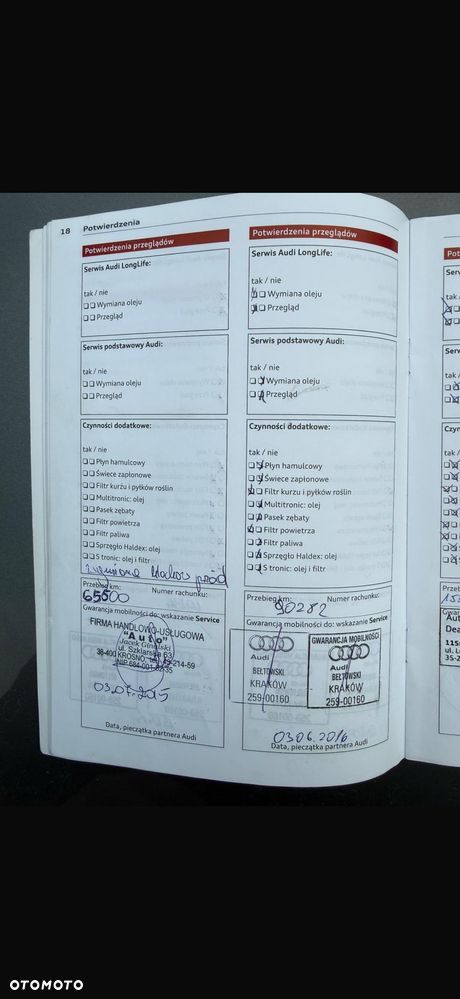 18 Potwierdzenia
Potwierdzenia przeglądów
Serwis Audi LongLife:
tak / nie
Wymiana oleju
Przegląd
Serwis podstawowy Audi:
tak / nie
Wymiana oleju
Przegląd
Czynności dodatkowe:
tak / nie
Płyn hamulcowy
Świece zapłonowe
Filtr kurzu i pyłków roślin
Multitronic: olej
Pasek zębaty
Filtr powietrza
Filtr paliwa
Sprzęgło Haldex: olej
S tronic: olej i filtr
Przebieg km: Numer rachunku:
65500
Gwarancja mobilności do: wskazanie Service
FIRMA HANDLOWO-USŁUGOWA
"A u t o"
Jacek
ul. Szklarska 63
38-400 KROSNO,
03.07.2015
Data, pieczątka partnera Audi
Potwierdzenia przeglądów
Serwis Audi LongLife:
tak / nie
Wymiana oleju
Przegląd
Serwis podstawowy Audi:
tak / nie
Wymiana oleju
Przegląd
Czynności dodatkowe:
tak / nie
Płyn hamulcowy
Świece zapłonowe
Filtr kurzu i pyłków roślin
Multitronic: olej
Pasek zębaty
Filtr powietrza
Filtr paliwa
Sprzęgło Haldex: olej
S tronic: olej i filtr
Przebieg km: Numer rachunku:
90282
Gwarancja mobilności do: wskazanie Service
Audi
BEŁTOWSKI
KRAKÓW
259-00160
GWARANCJA MOBILNOŚCI
Audi
BEŁTOWSKI
KRAKÓW
259-00160
03.06.2016
Data, pieczątka partnera Audi
OTOMOTO